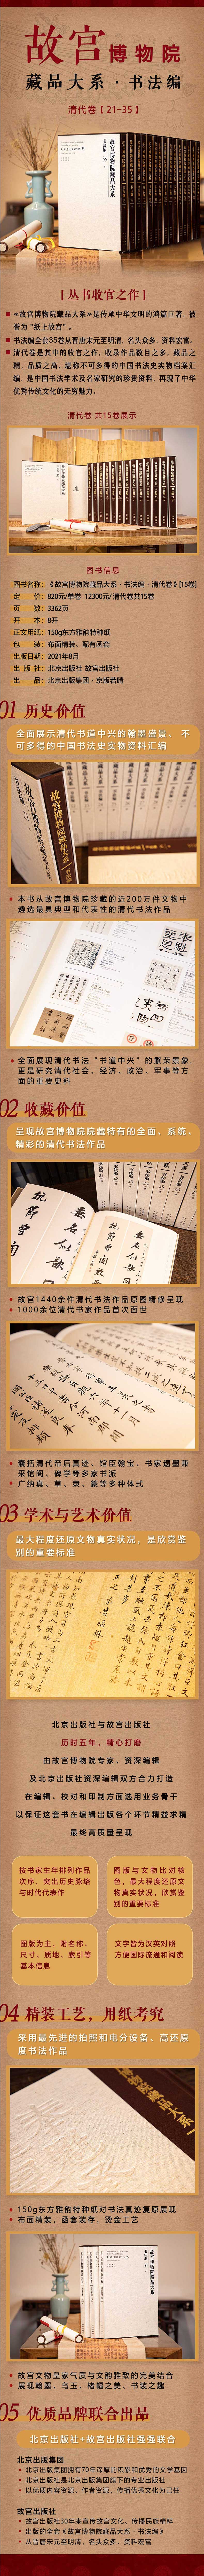 故宫博物院
藏品大系·书法编
清代卷【21-35】
【丛书收官之作】
《故宫博物院藏品大系》是传承中华文明的鸿篇巨著，被
誉为“纸上故宫”。
书法编全套35卷从晋唐宋元至明清，名头众多、资料宏富。
清代卷是其中的收官之作，收录作品数目之多，藏品之
精，品质之高，堪称不可多得的中国书法史实物档案汇
编，是中国书法学术及名家研究的珍贵资料，再现了中华
优秀传统文化的无穷魅力。
清代卷 共15卷展示
图书信息
图书名称：《故宫博物院藏品大系·书法编·清代卷》[15卷]
定 价：820元/单卷 12300元/清代卷共15卷
页 数：3362页
开 本：8开
正文用纸：150g东方雅韵特种纸
包 装：布面精装、配有函套
出版日期：2021年8月
出 版 社：北京出版社 故宫出版社
出 品：北京出版集团·京版若晴
01 历史价值
全面展示清代书道中兴的翰墨盛景、不
可多得的中国书法史实物资料汇编
本书从故宫博物院珍藏的近200万件文物中
遴选最具典型和代表性的清代书法作品
全面展现清代书法“书道中兴”的繁荣景象，
更是研究清代社会、经济、政治、军事等方
面的重要史料
02 收藏价值
呈现故宫博物院院藏特有的全面、系统、
精彩的清代书法作品
故宫1440余件清代书法作品原图精修呈现
1000余位清代书家作品首次面世
囊括清代帝后真迹、馆臣翰宝、书家遗墨兼
采馆阁、碑学等多家书派
广纳真、草、隶、篆等多种体式
03 学术与艺术价值
最大程度还原文物真实状况，是欣赏鉴
别的重要标准
北京出版社与故宫出版社
历时五年，精心打磨
由故宫博物院专家、资深编辑
及北京出版社资深编辑双方合力打造
在编辑、校对和印制方面选用业务骨干
以保证这套书在编辑出版各个环节精益求精
最终高质量呈现
按书家生年排列作品
次序，突出历史脉络
与时代代表作
图版与文物比对核
色，最大程度还原文
物真实状况，欣赏鉴
别的重要标准
图版为主，附名称、
尺寸、质地、索引等
基本信息
文字皆为汉英对照
方便国际流通和阅读
04 精装工艺，用纸考究
采用最先进的拍照和电分设备、高还原
度书法作品
150g东方雅韵特种纸对书法真迹复原展现
布面精装，函套装存，烫金工艺
故宫文物皇家气质与文韵雅致的完美结合
展现翰墨、乌玉、楮幅之美、书装之趣
05 优质品牌联合出品
北京出版社+故宫出版社强强联合
北京出版集团
北京出版集团拥有70年深厚的积累和优秀的文学基因
北京出版社是北京出版集团旗下的专业出版社
以优质内容资源、作者资源，传播优秀文化为己任
故宫出版社
故宫出版社30年来宣传故宫文化、传播民族精粹
出版的全套《故宫博物院藏品大系·书法编》
从晋唐宋元至明清，名头众多、资料宏富